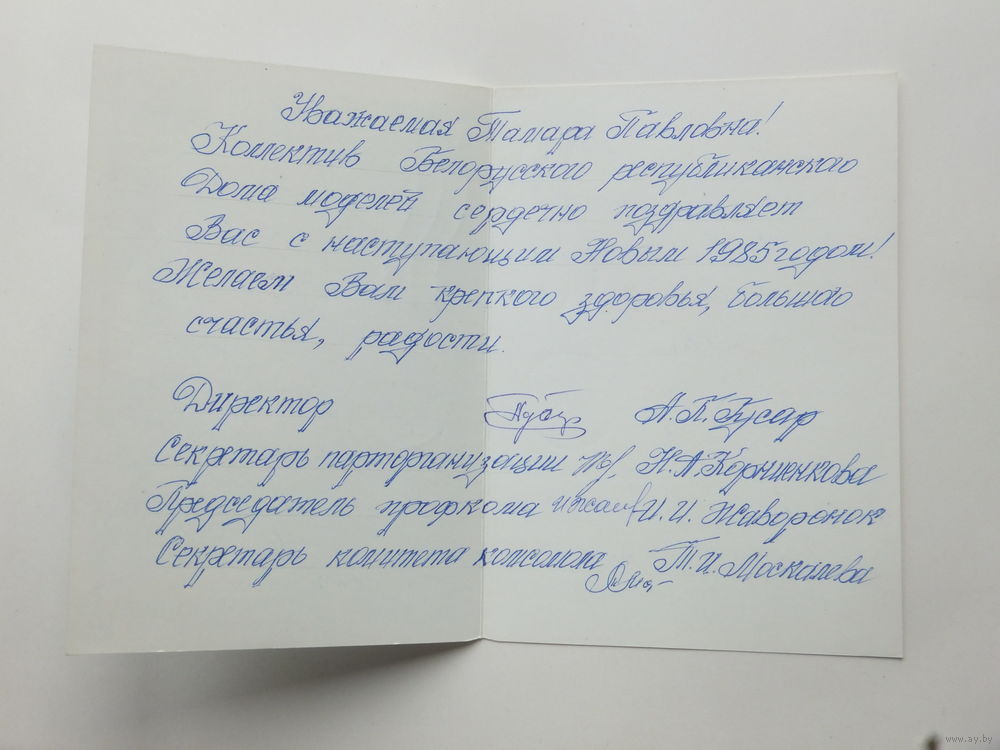 Уважаемая Тамара Павловна!
Коллектив Белорусского республиканского
Дома моделей сердечно поздравляет
Вас с наступающим Новым 1985 годом!
Желаем Вам крепкого здоровья, большого
счастья, радости.
Директор А.П. Гусар
Секретарь парторганизации Н.А Корниенкова
Председатель профкома И.И. Жаворонок
Секретарь комитета комсомола Т.И. Москалева
www.ay.by